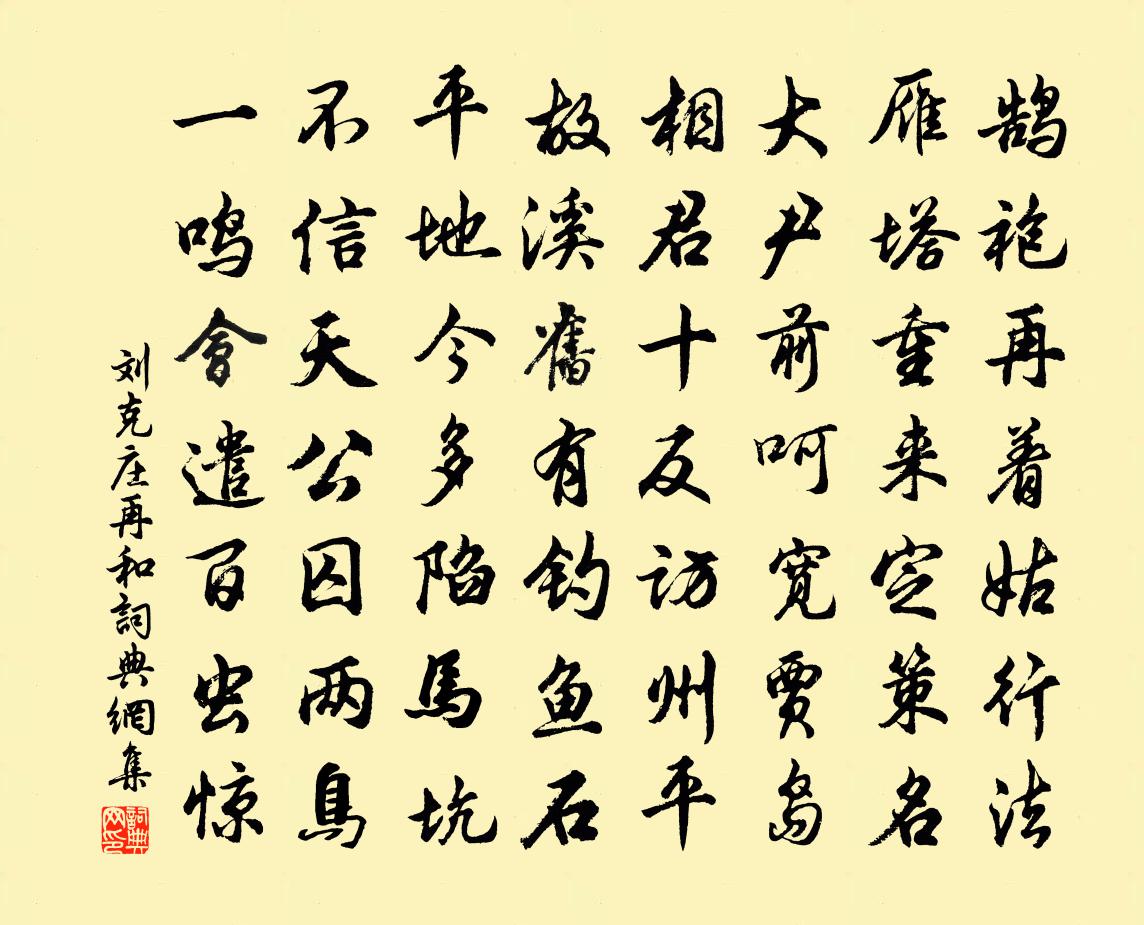 鹄袍再着姑行法
雁塔重来定策名
大尹前呵宽贾岛
相君十反访州平
故溪旧有钓鱼石
平地今多陷馬坑
不信天公囚两鳥
一鸣會遣百虫惊
刘克庄再和詞典網集
詞典网印